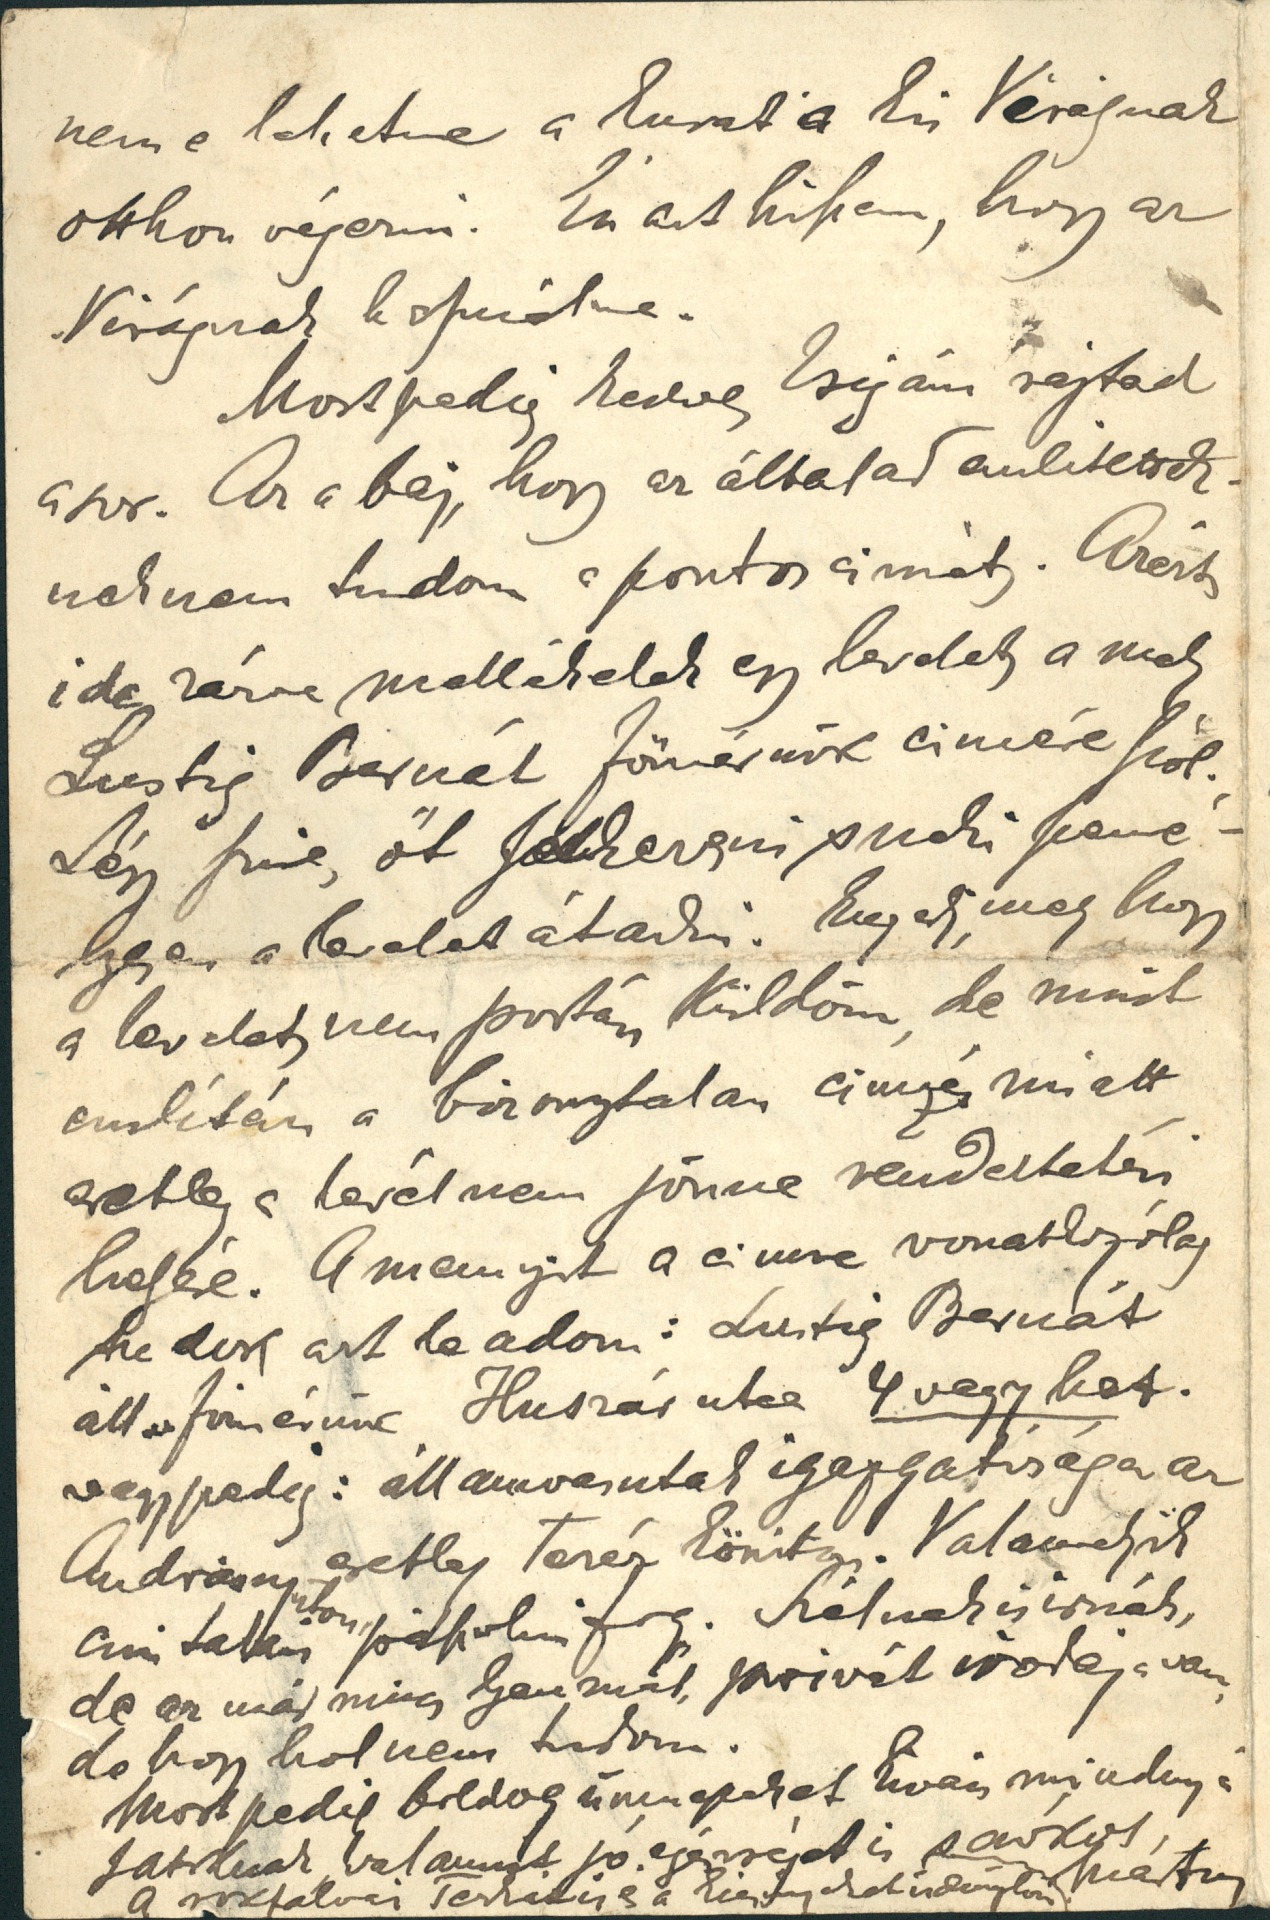 nem e lehetne a kurát a kis Virágnak
otthon végezni. Én azt hiszem, hogy az
Virágnak használna.
Most pedig kedves Zsigám rajtad
a sor. Az a baj, hogy az általad emlitettek-
nek nem tudom a pontos cimét. Azért
ide zárva mellékelek egy levelet a mely
Lustig Bernát főmérnök cimére szól.
Légy szives őt felkeresni s neki szemé-
lyesen a levelet átadni. Engedj meg hogy
a levelet nem postán küldöm, de mint
emlitém a bizonytalan cimzés miatt
esetleg a levél nem jönne rendeltetési
helyére. Amennyit a cimre vonatkozólag
tudok azt leadom: Lustig Bernát
áll. főmérnök Huszár utca 4 vagy hat.
vagy pedig: államvasutak igazgatósága az
Andrássy uton, esetleg Teréz köruton. Valamelyik
cim talán jó
de az már nincs
privát irodája van,
de hogy hol nem tudom.
Most pedig boldog ünnepeket kiván mindnyá-
jatoknak valamint jó egészséget is
Márton
a